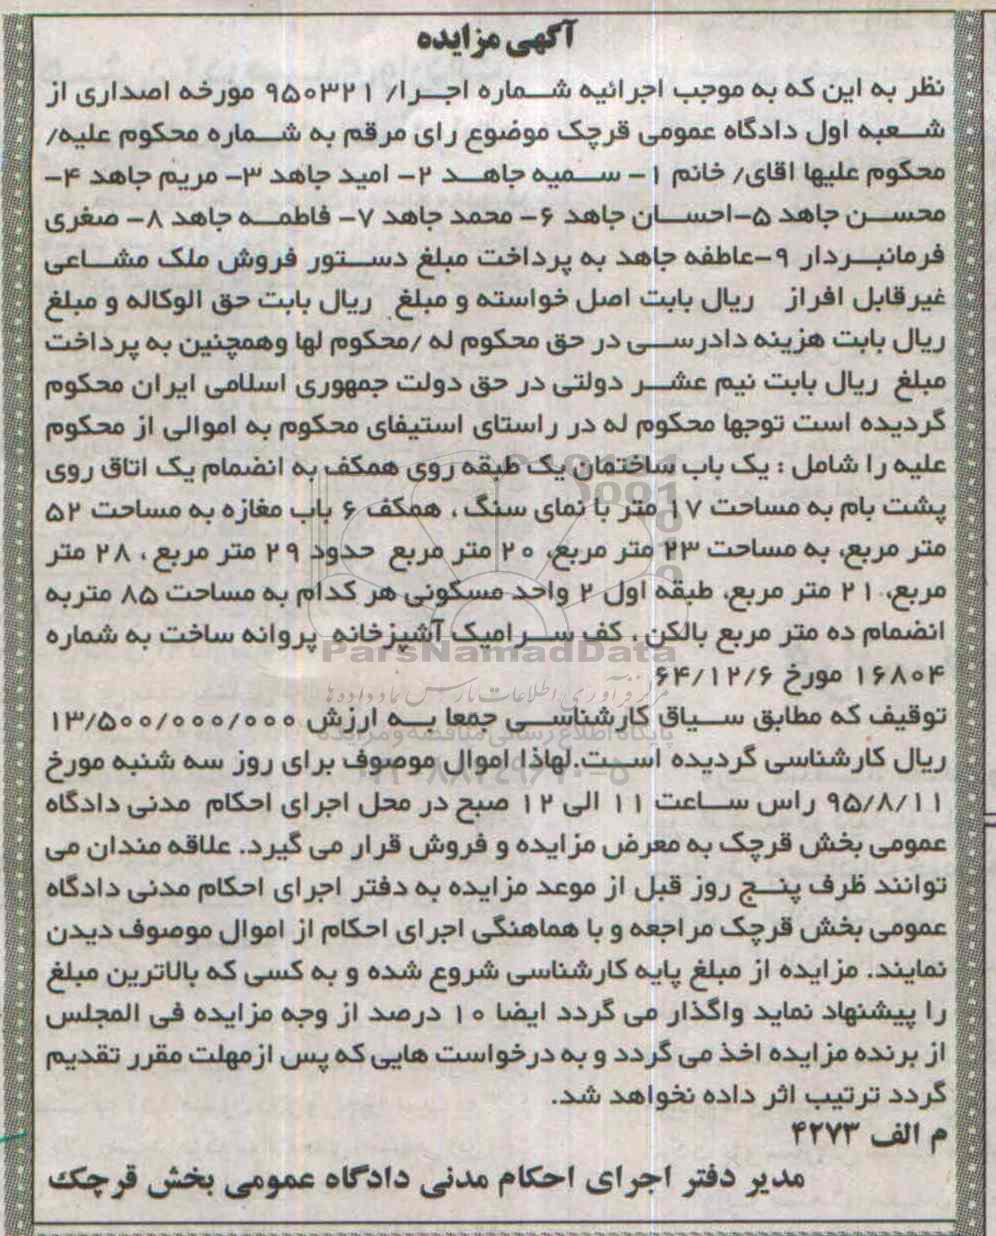 آگهی مزایده
نظر به این که به موجب اجرائیه شماره اجرا/ ۹۵۰۳۲۱ مورخه اصداری از
شعبه اول دادگاه عمومی قرچک موضوع رای مرقم به شماره محکوم علیه/
محکوم علیها اقای/ خانم ۱- سمیه جاهد ۲- امید جاهد ۳- مریم جاهد ۴-
محسن جاهد ۵-احسان جاهد ۶- محمد جاهد ۷- فاطمه جاهد ۸- صغری
فرمانبردار ۹-عاطفه جاهد به پرداخت مبلغ دستور فروش ملک مشاعی
غیرقابل افراز ریال بابت اصل خواسته و مبلغ ریال بابت حق الوکاله و مبلغ
ریال بابت هزینه دادرسی در حق محکوم له /محکوم لها وهمچنین به پرداخت
مبلغ ریال بابت نیم عشر دولتی در حق دولت جمهوری اسلامی ایران محکوم
گردیده است توجها محکوم له در راستای استیفای محکوم به اموالی از محکوم
علیه را شامل : یک باب ساختمان یک طبقه روی همکف به انضمام یک اتاق روی
پشت بام به مساحت ۱۷ متر با نمای سنگ ، همکف ۶ باب مغازه به مساحت ۵۲
متر مربع، به مساحت ۲۳ متر مربع، ۲۰ متر مربع حدود ۲۹ متر مربع ، ۲۸ متر
مربع، ۲۱ متر مربع، طبقه اول ۲ واحد مسکونی هر کدام به مساحت ۸۵ متربه
انضمام ده متر مربع بالکن ، کف سرامیک آشپزخانه پروانه ساخت به شماره
۱۶۸۰۴ مورخ ۶۴/۱۲/۶
توقیف که مطابق سیاق کارشناسی جمعا به ارزش ۱۳/۵۰۰/۰۰۰/۰۰۰
ریال کارشناسی گردیده است.لهاذا اموال موصوف برای روز سه شنبه مورخ
۹۵/۸/۱۱ راس ساعت ۱۱ الی ۱۲ صبح در محل اجرای احکام مدنی دادگاه
عمومی بخش قرچک به معرض مزایده و فروش قرار می گیرد. علاقه مندان می
توانند ظرف پنج روز قبل از موعد مزایده به دفتر اجرای احکام مدنی دادگاه
عمومی بخش قرچک مراجعه و با هماهنگی اجرای احکام از اموال موصوف دیدن
نمایند. مزایده از مبلغ پایه کارشناسی شروع شده و به کسی که بالاترین مبلغ
را پیشنهاد نماید واگذار می گردد ایضا ۱۰ درصد از وجه مزایده فی المجلس
از برنده مزایده اخذ می گردد و به درخواست هایی که پس ازمهلت مقرر تقدیم
گردد ترتیب اثر داده نخواهد شد.
م الف ۴۲۷۳
مدیر دفتر اجرای احکام مدنی دادگاه عمومی بخش قرچک
ParsNamadData
مرکز فرآوری اطلاعات پارس نماد داده ها
پایگاه اطلاع رسانی مناقصه و مزایده